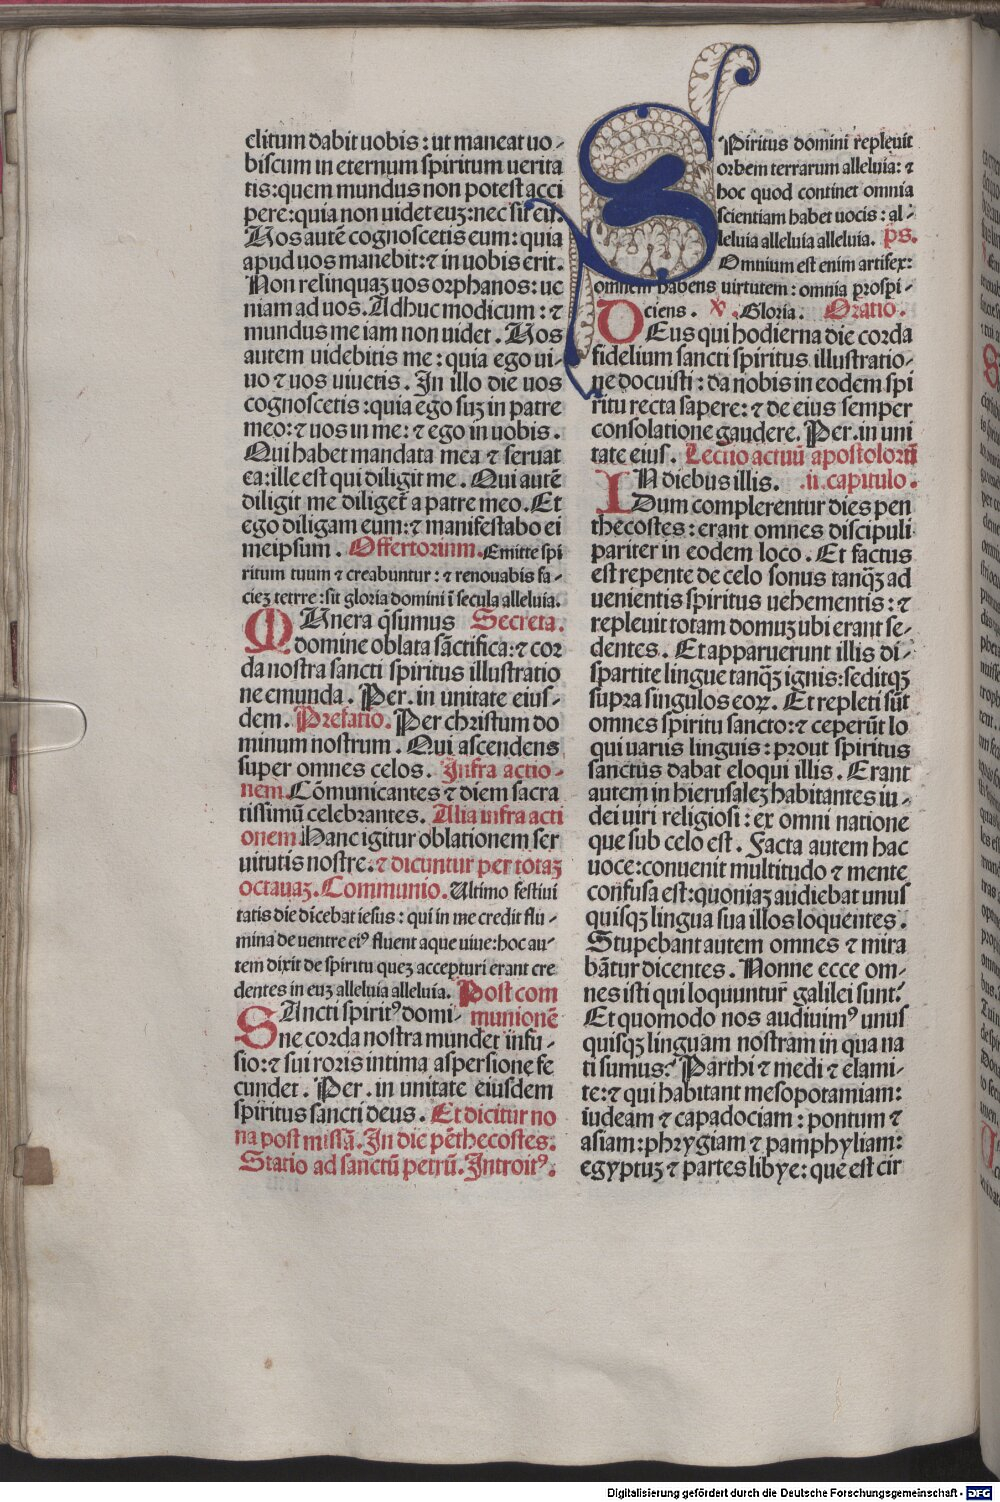 clitum dabit uobis : ut maneat uo-
biscum in eternum spiritum uerita
tis: quem mundus non potest acci
pere: quia non uidet euʒ: nec sit eū.
Uos autē cognoscetis eum: quia
apud uos manebit: ⁊ in uobis erit.
Non relinquaʒ uos orphanos: ue
niam ad uos. Adhuc modicum : ⁊
mundus me iam non uidet. Uos
autem uidebitis me : quia ego ui-
uo ⁊ uos uiuetis. In illo die uos
cognoscetis : quia ego suʒ in patre
meo: ⁊ uos in me: ⁊ ego in uobis.
Qui habet mandata mea ⁊ seruat
ea: ille est qui diligit me. Qui autē
diligit me diliget̄ a patre meo. Et
ego diligam eum: ⁊ manifestabo ei
meipsum. Offertorium. Emitte spi
ritum tuum ⁊ creabuntur : ⁊ renouabis fa-
cieʒ terrre : sit gloria domini ī secula alleluia.
MUnera q̄sumus Secreta.
domine oblata sāctifica: ⁊ cor
da nostra sancti spiritus illustratio
ne emunda. Per. in unitate eius-
dem. Prefatio. Per christum do
minum nostrum. Qui ascendens
super omnes celos. Infra actio-
nem. Cōmunicantes ⁊ diem sacra
tissimū celebrantes. Alia infra acti
onem. Hanc igitur oblationem ser
uitutis nostre. ⁊ dicuntur per totaʒ
octauaʒ. Communio. Ultimo festiui
tatis die dicebat iesus : qui in me credit flu-
mina de uentre eiꝰ fluent aque uiue: hoc au-
tem dixit de spiritu queʒ accepturi erant cre
dentes in euʒ alleluia alleluia. Post com
SAncti spiritꝰ domi- munionē
ne corda nostra mundet infu-
sio: ⁊ sui roris intima aspersione fe
cundet. Per. in unitate eiusdem
spiritus sancti deus. Et dicitur no
na post missā. In die pēthecostes.
Statio ad sanctū petrū. Introitꝰ.
SPiritus domini repleuit
orbem terrarum alleluia: ⁊
hoc quod continet omnia
scientiam habet uocis : al-
leluia alleluia alleluia. ps.
Omnium est enim artifex:
omnem habens uirtutem : omnia prospi-
ciens. ℣. Gloria. Oratio.
DEus qui hodierna die corda
fidelium sancti spiritus illustratio-
ne docuisti : da nobis in eodem spi
ritu recta sapere: ⁊ de eius semper
consolatione gaudere. Per. in uni
tate eius. Lectio actuū apostolorū
IN diebus illis. .ii. capitulo.
Dum complerentur dies pen
thecostes : erant omnes discipuli
pariter in eodem loco. Et factus
est repente de celo sonus tanqʒ ad
uenientis spiritus uehementis : ⁊
repleuit totam domuʒ ubi erant se-
dentes. Et apparuerunt illis di-
spartite lingue tanqʒ ignis: seditqʒ
supra singulos eoꝝ. Et repleti sūt
omnes spiritu sancto: ⁊ ceperūt lo
qui uariis linguis : prout spiritus
sanctus dabat eloqui illis. Erant
autem in hierusaleʒ habitantes iu-
dei uiri religiosi : ex omni natione
que sub celo est. Facta autem hac
uoce: conuenit multitudo ⁊ mente
confusa est: quoniaʒ audiebat unus
quisqʒ lingua sua illos loquentes.
Stupebant autem omnes ⁊ mira
bātur dicentes. Nonne ecce om-
nes isti qui loquuntur galilei sunt?
Et quomodo nos audiuimꝰ unus
quisqʒ linguam nostram in qua na
ti sumus? Parthi ⁊ medi ⁊ elami-
te: ⁊ qui habitant mesopotamiam:
iudeam ⁊ capadociam : pontum ⁊
asiam: phrygiam ⁊ pamphyliam:
egyptuʒ ⁊ partes libye: que est cir
Digitalisierung gefördert durch die Deutsche Forschungsgemeinschaft - DFG